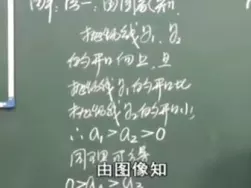 解:法一:由图象知
抛物线y₁、y₂
的开口向上,且
抛物线y₁的开口比
抛物线y₂的开口小,
∴a₁>a₂>0
同理可得
由图像知